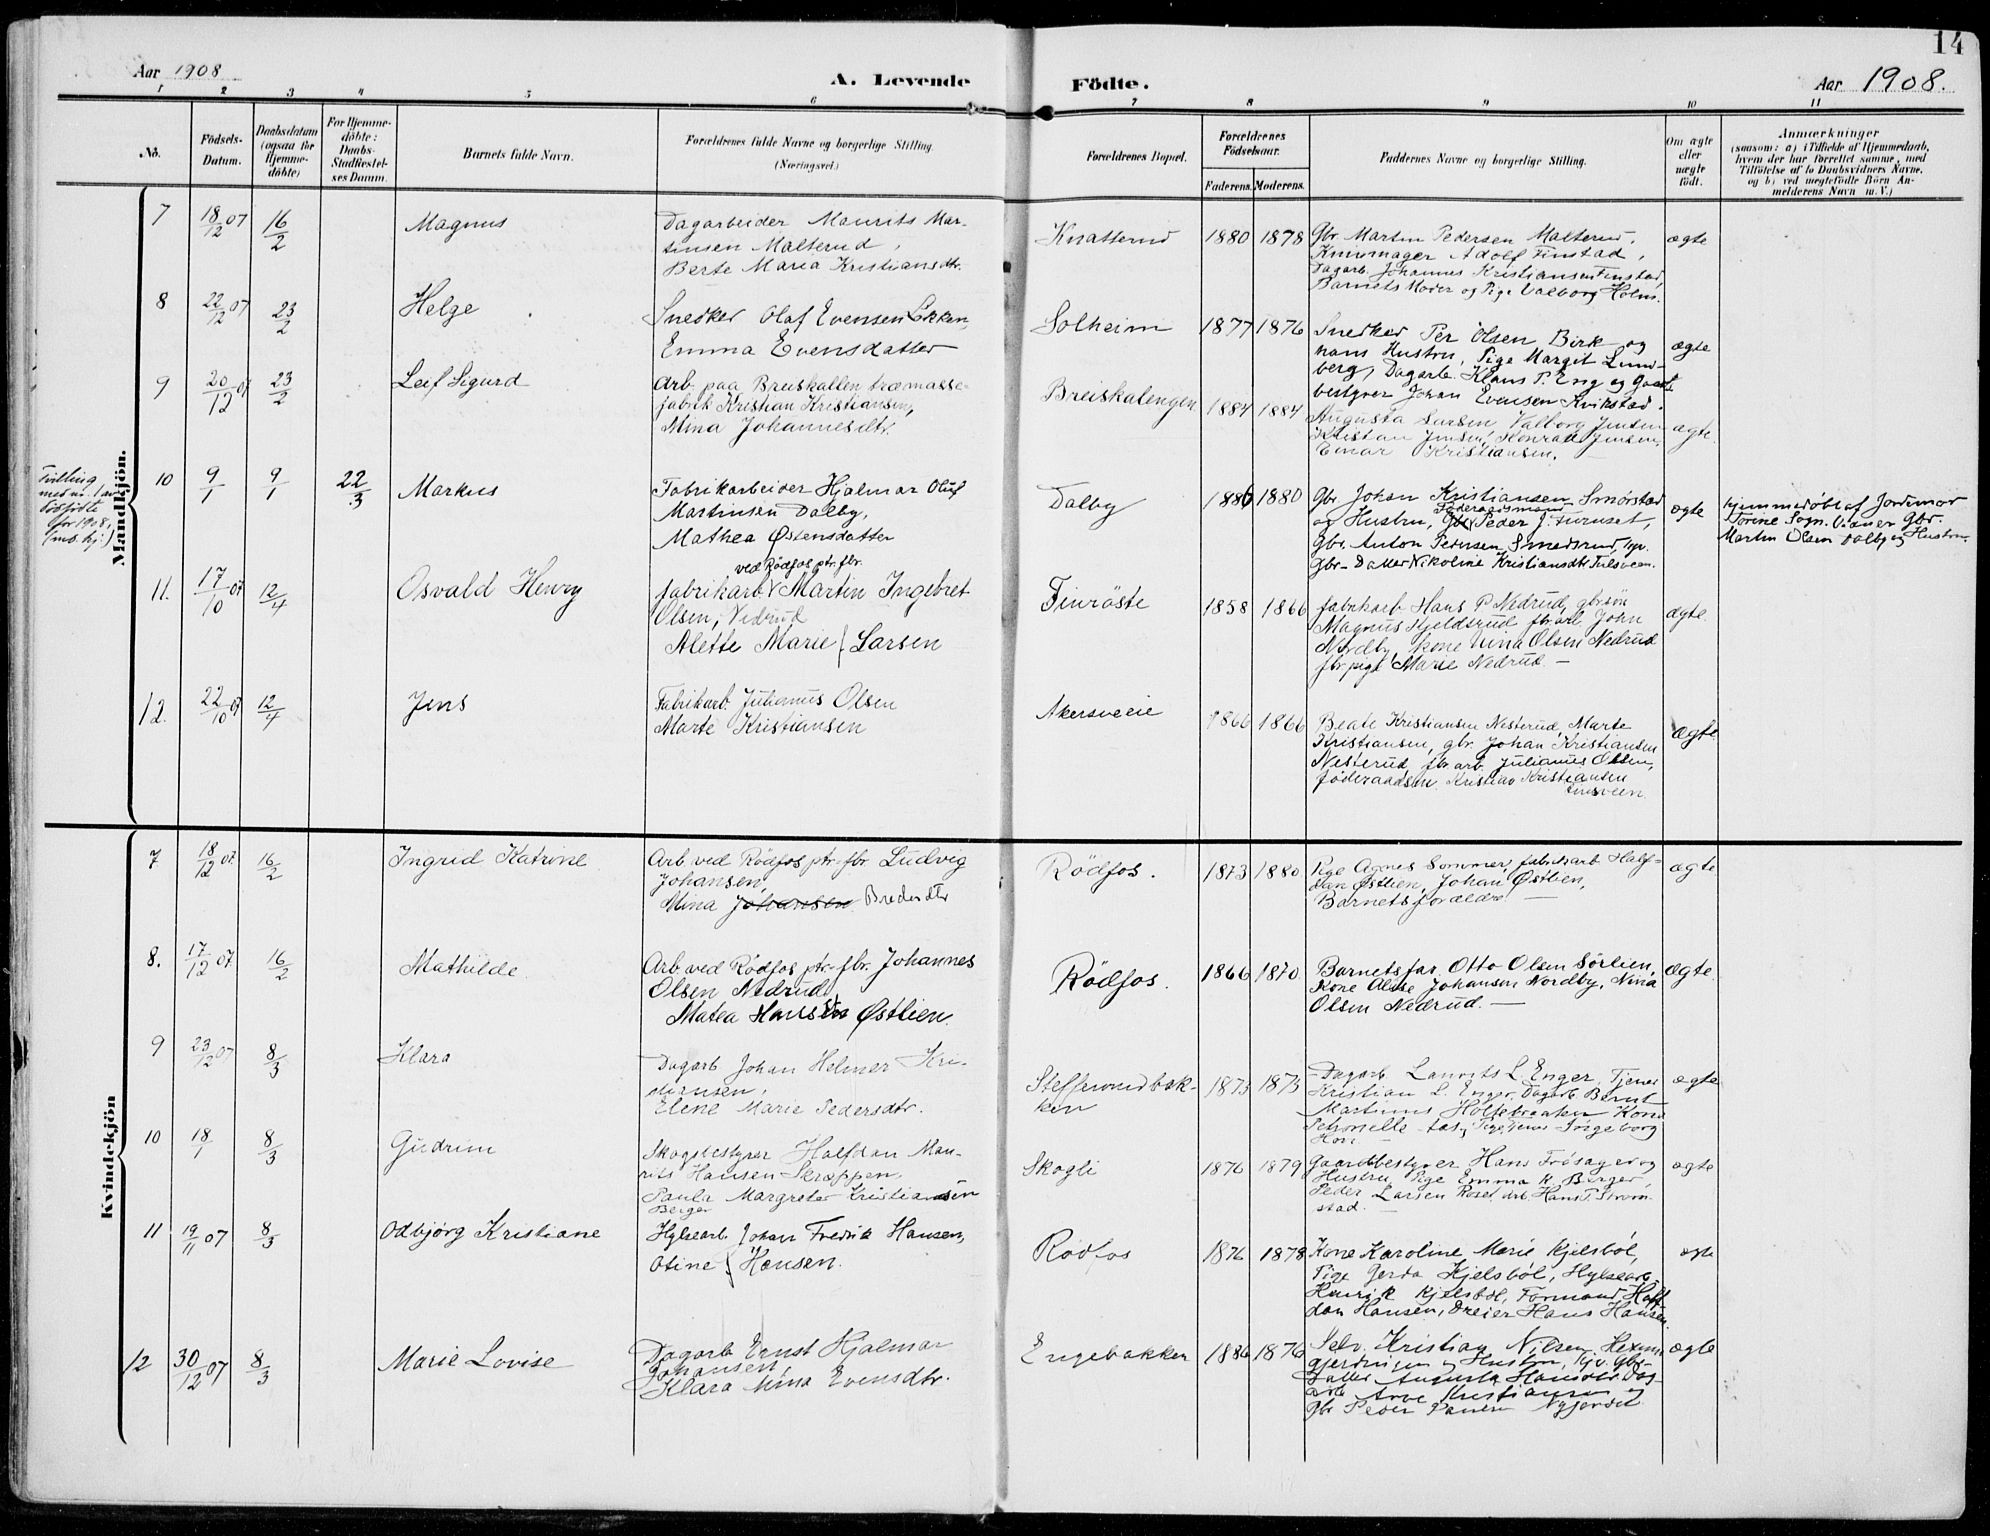 14
Aar 1908
A. Levende Födte.
Aar 1908.
1 2 3 4 5 6 7 8 9 10 11
No.
Födsels-
Datum.
Daabsdatum
(ogsaa for
Hjemme-
döbte)
For Hjemme-
döbte:
Daabs-
Stadfæstel-
ses Datum.
Barnets fulde Navn.
Forældrenes fulde Navne og borgerlige Stilling
(Næringsvei.)
Forældrenes Bopæl.
Forældrenes
Födselsaar.
Faderens. Moderens.
Faddernes Navne og borgerlige Stilling.
Om ægte
eller
uægte
födt.
Anmærkninger
(saasom: a) i Tilfælde af Hjemmedaab,
hvem der har forrettet samme, med
Tilföielse af to Daabsvidners Navne,
og b) ved uegtefödte Börn An-
melderens Navn m. V.)
Mandkjön.
7 18/12 07 16/2 Magnus
Dagarbeider Maurits Mar-
tinsen Malterud,
Berte Maria Kristiansdtr.
Knatterud 1880 1878
Gbr. Martin Pedersen Malterud,
Skomager Adolf Finstad,
Dagarb. Johannes Kristiansen Finstad,
Barnets Moder og Pige Valborg Holm.
ægte
8 22/12 07 23/2 Helge
Snedker Olaf Evensen Lökken,
Emma Evensdatter
Solheim 1877 1876
Snedker Per Olsen Birk og
hans Hustru, Pige Margit Lund-
berg, Dagarb. Klaus P. Eng og Gaards-
bestyrer Johan Evensen Kvikstad.
ægte
9 20/12 07 23/2 Leif Sigurd
Arb. paa Breiskallen træmasse-
fabrik Kristian Kristiansen,
Mina Johannesdtr.
Breiskalengen 1884 1884
Augusta Larsen, Valborg Jensen
Kristian Jensen, Konrad Jensen,
Einar Kristiansen.
ægte.
Tvilling
med nr. 1 av
dödfödte
for 1908,
10 9/1 9/1 22/3 Markus
Fabrikarbeider Hjalmar Oluf
Martinsen Dalby,
Mathea Østensdatter
Dalby 1886 1880
Gbr. Johan Kristiansen Smörstad
og Hustru, Föderaadsmand Peder J. Furuset,
Gbr. Anton Pedersen Smedsrud,
Gbr-Datter Nikoline Kristiansdtr Fulsveen.
ægte
hjemmedöbt af Jordemor
Torine Sogn. Vidner Gbr.
Martin Olsen Dalby og Hustru.
11. 17/10 07 12/4 Osvald Henry
ved Rödfos ptr. fbr.
fabrikarb Martin Ingebret
Olsen, Nedrud
Alette Marie } Larsen
Finröste 1858 1866
fabrikarb Hans P Nedrud, gbrsön
Magnus Hjeldsrud fbrarb John
Nordby kone Nina Olsen Nedrud
fbrpige Marie Nedrud. —
ægte.
12. 22/10 07 12/4 Jens
Fabrikarb Julianus Olsen
Marte Kristiansen
Akersveeie 1866 1866
Beate Kristiansen Nesterud, Marte
Kristiansen, gbr. Johan Kristiansen
Nesterud, fbrarb. Julianus Olsen,
föderaadsm. Kristian Kristiansen
Finsveen.
ægte.
Kvindekjön
7 18/12 07. 16/2 Ingrid Katrine
Arb ved Rödfos ptr-fbr Ludvig
Johansen,
Mina Johansen Bredesdtr
Rödfos. 1873 1880
Pige Agnes Sommer, fabrikarb Half-
dan Østlien, Johan Østlien,
Barnets forældre —
ægte
8. 17/12 07. 16/2 Mathilde.
Arb ved Rödfos ptr-fbr. Johannes
Olsen Nedrud,
Matea Hansen Østlien.
Rödfos. 1866 1870
Barnets far, Otto Olsen Sörlien,
Kone Alise Johansen Nordby, Nina
Olsen Nedrud. —
ægte.
9 23/12 07 8/3 Klara
Dagarb Johan Helmer Kri-
stiansen,
Elene Marie Pedersdtr.
Steffensrudbak-
ken
1873 1873
Dagarb Laurits L. Enger, Tjener
Kristian L. Enger, Dagarb Bernt
Martinus Holtebraaten Kone
ægte
10 18/1 8/3 Gudrun
Skogbestyrer Halfdan Mau-
rits Hansen Skroppen,
Paula Margrete Kristiansen
Berger
Skogli 1876 1879
Gaardbestyrer Hans Frösager og
Hustru, Pige Emma K. Berger,
Peder Larsen Roset, Arb. Hans P. Strøm-
stad. —
ægte
11 19/11 07 8/3 Odbjörg Kristiane
Hylsearb. Johan Fredrik Hansen,
Otine } Hansen.
Rödfos 1876 1878
Kone Karoline Marie Kjelsböl,
Pige Gerda Kjelsböl, Hylsearb.
Henrik Kjelsböl, Formand Half-
dan Hansen, Dreier Hans Hansen.
ægte
12 30/12 07 8/3 Marie Lovise
Dagarb Ernst Hjalmar
Johansen,
Klara Mina Evensdtr.
Engebakken 1886 1876
Selv. Kristian Nilsen Hexum-
gjerdingen og Hustru, Gbr-
Datter Augusta Hansdtr. Dag-
arb Arve Kristiansen og
Gbr Peder Paulsen Nygjerdet
ægte